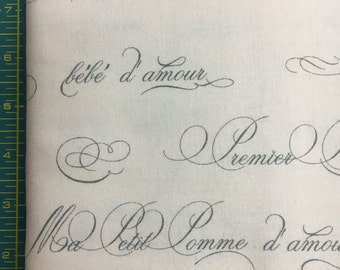 7
bébé d'amour
6
5
Premier
4
3
Ma Petit Pomme d'amour
2